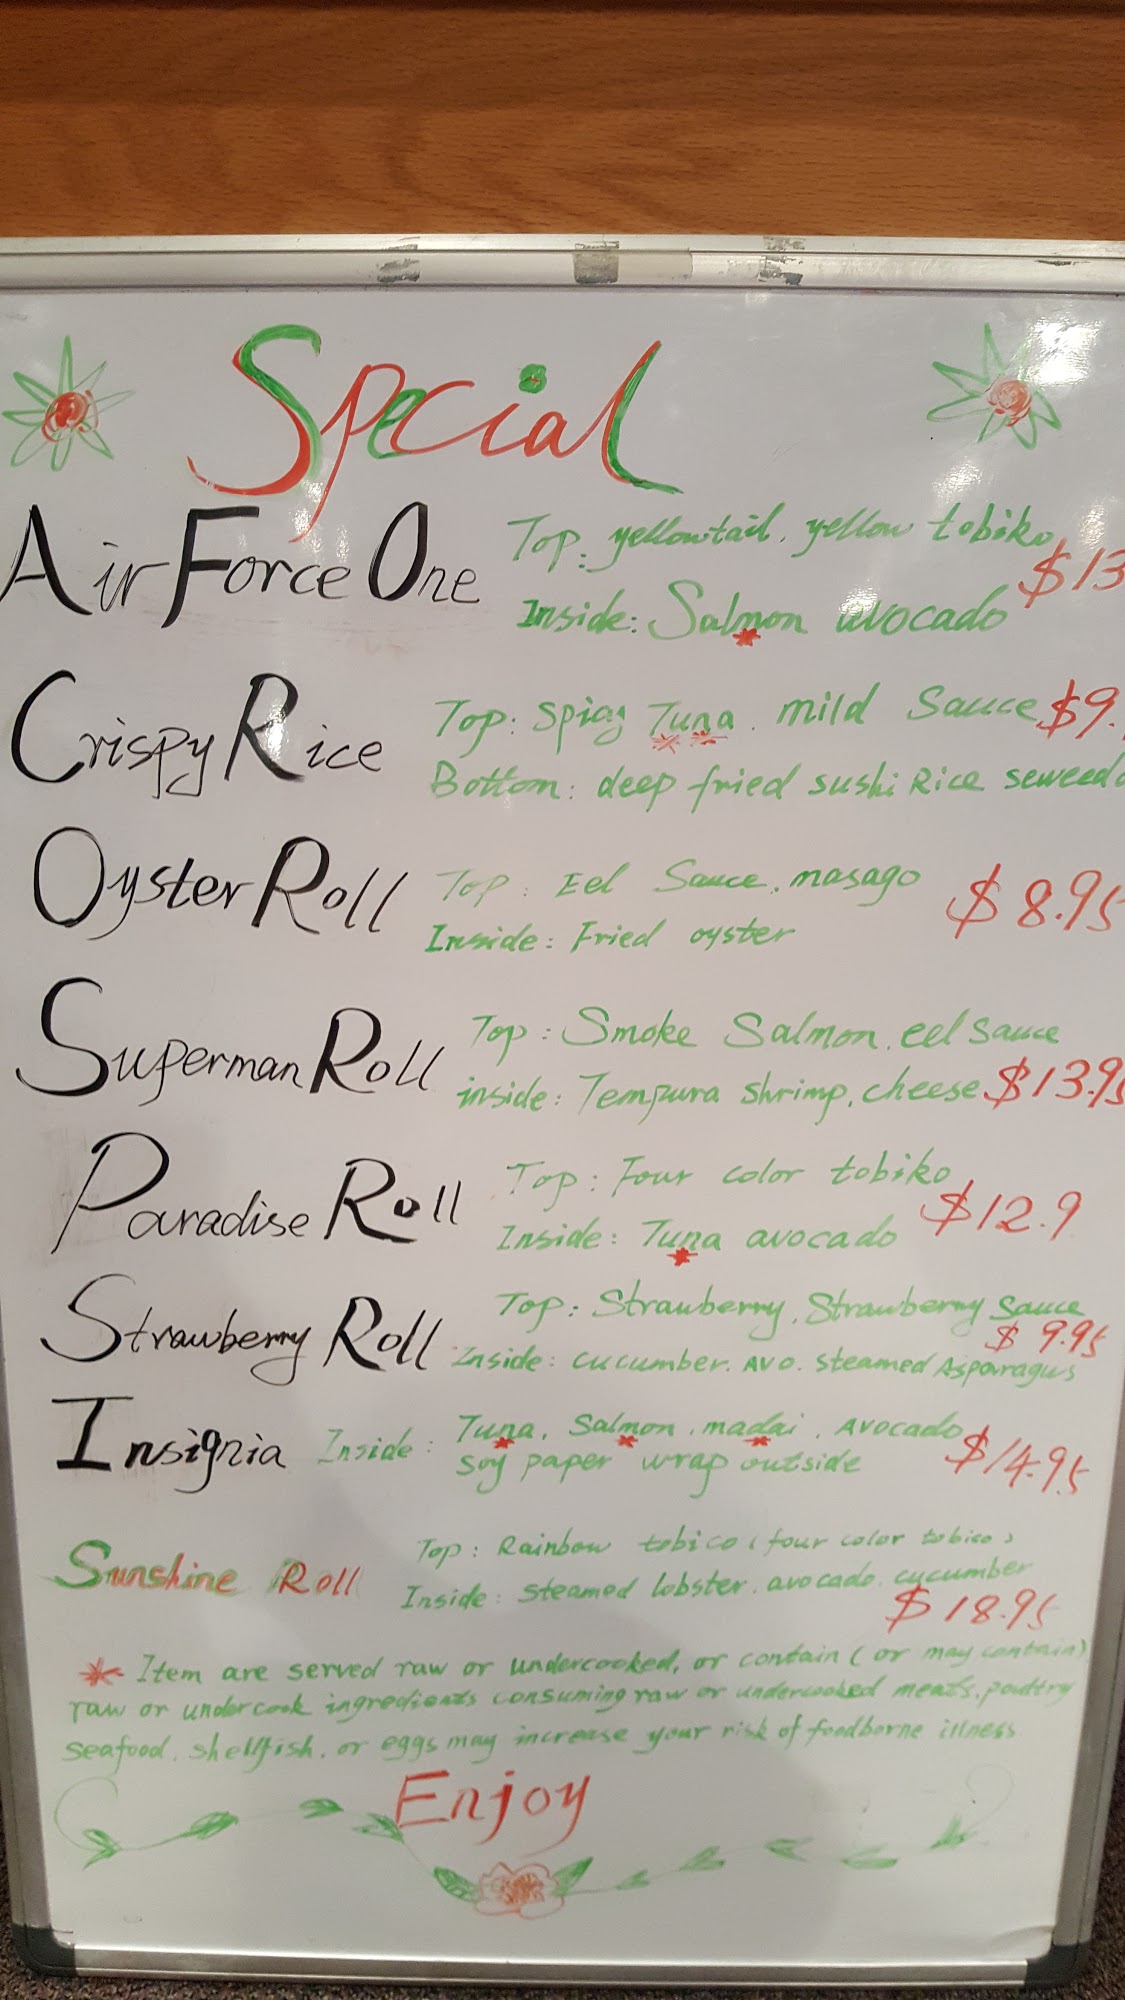 Special
Air Force One
Top: yellowtail, yellow tobiko
$13
Inside: Salmon avocado
Crispy Rice
Top: Spicy Tuna. mild Sauce $9.
Bottom: deep fried sushi Rice seweed
Oyster Roll
Top: Eel Sauce, masago
$8.95
Inside: Fried oyster
Superman Roll
Top: Smoke Salmon, eel Sauce
inside: Tempura shrimp, cheese $13.95
Paradise Roll
Top: Four color tobiko
$12.9
Inside: Tuna avocado
Strawberry Roll
Top: Strawberry, Strawberry Sauce
$9.95
Inside: cucumber. AVO. steamed Asparagus
Insignia
Inside: Tuna, Salmon, madai, Avocado
soy paper wrap outside
$14.95
Sunshine Roll
Top: Rainbow tobico (four color tobico)
Inside: steamed lobster, avocado, cucumber
$18.95
* Item are served raw or undercooked, or contain (or may contain)
raw or undercook ingredients consuming raw or undercooked meats, poultry
seafood, shellfish, or eggs may increase your risk of foodborne illness
Enjoy